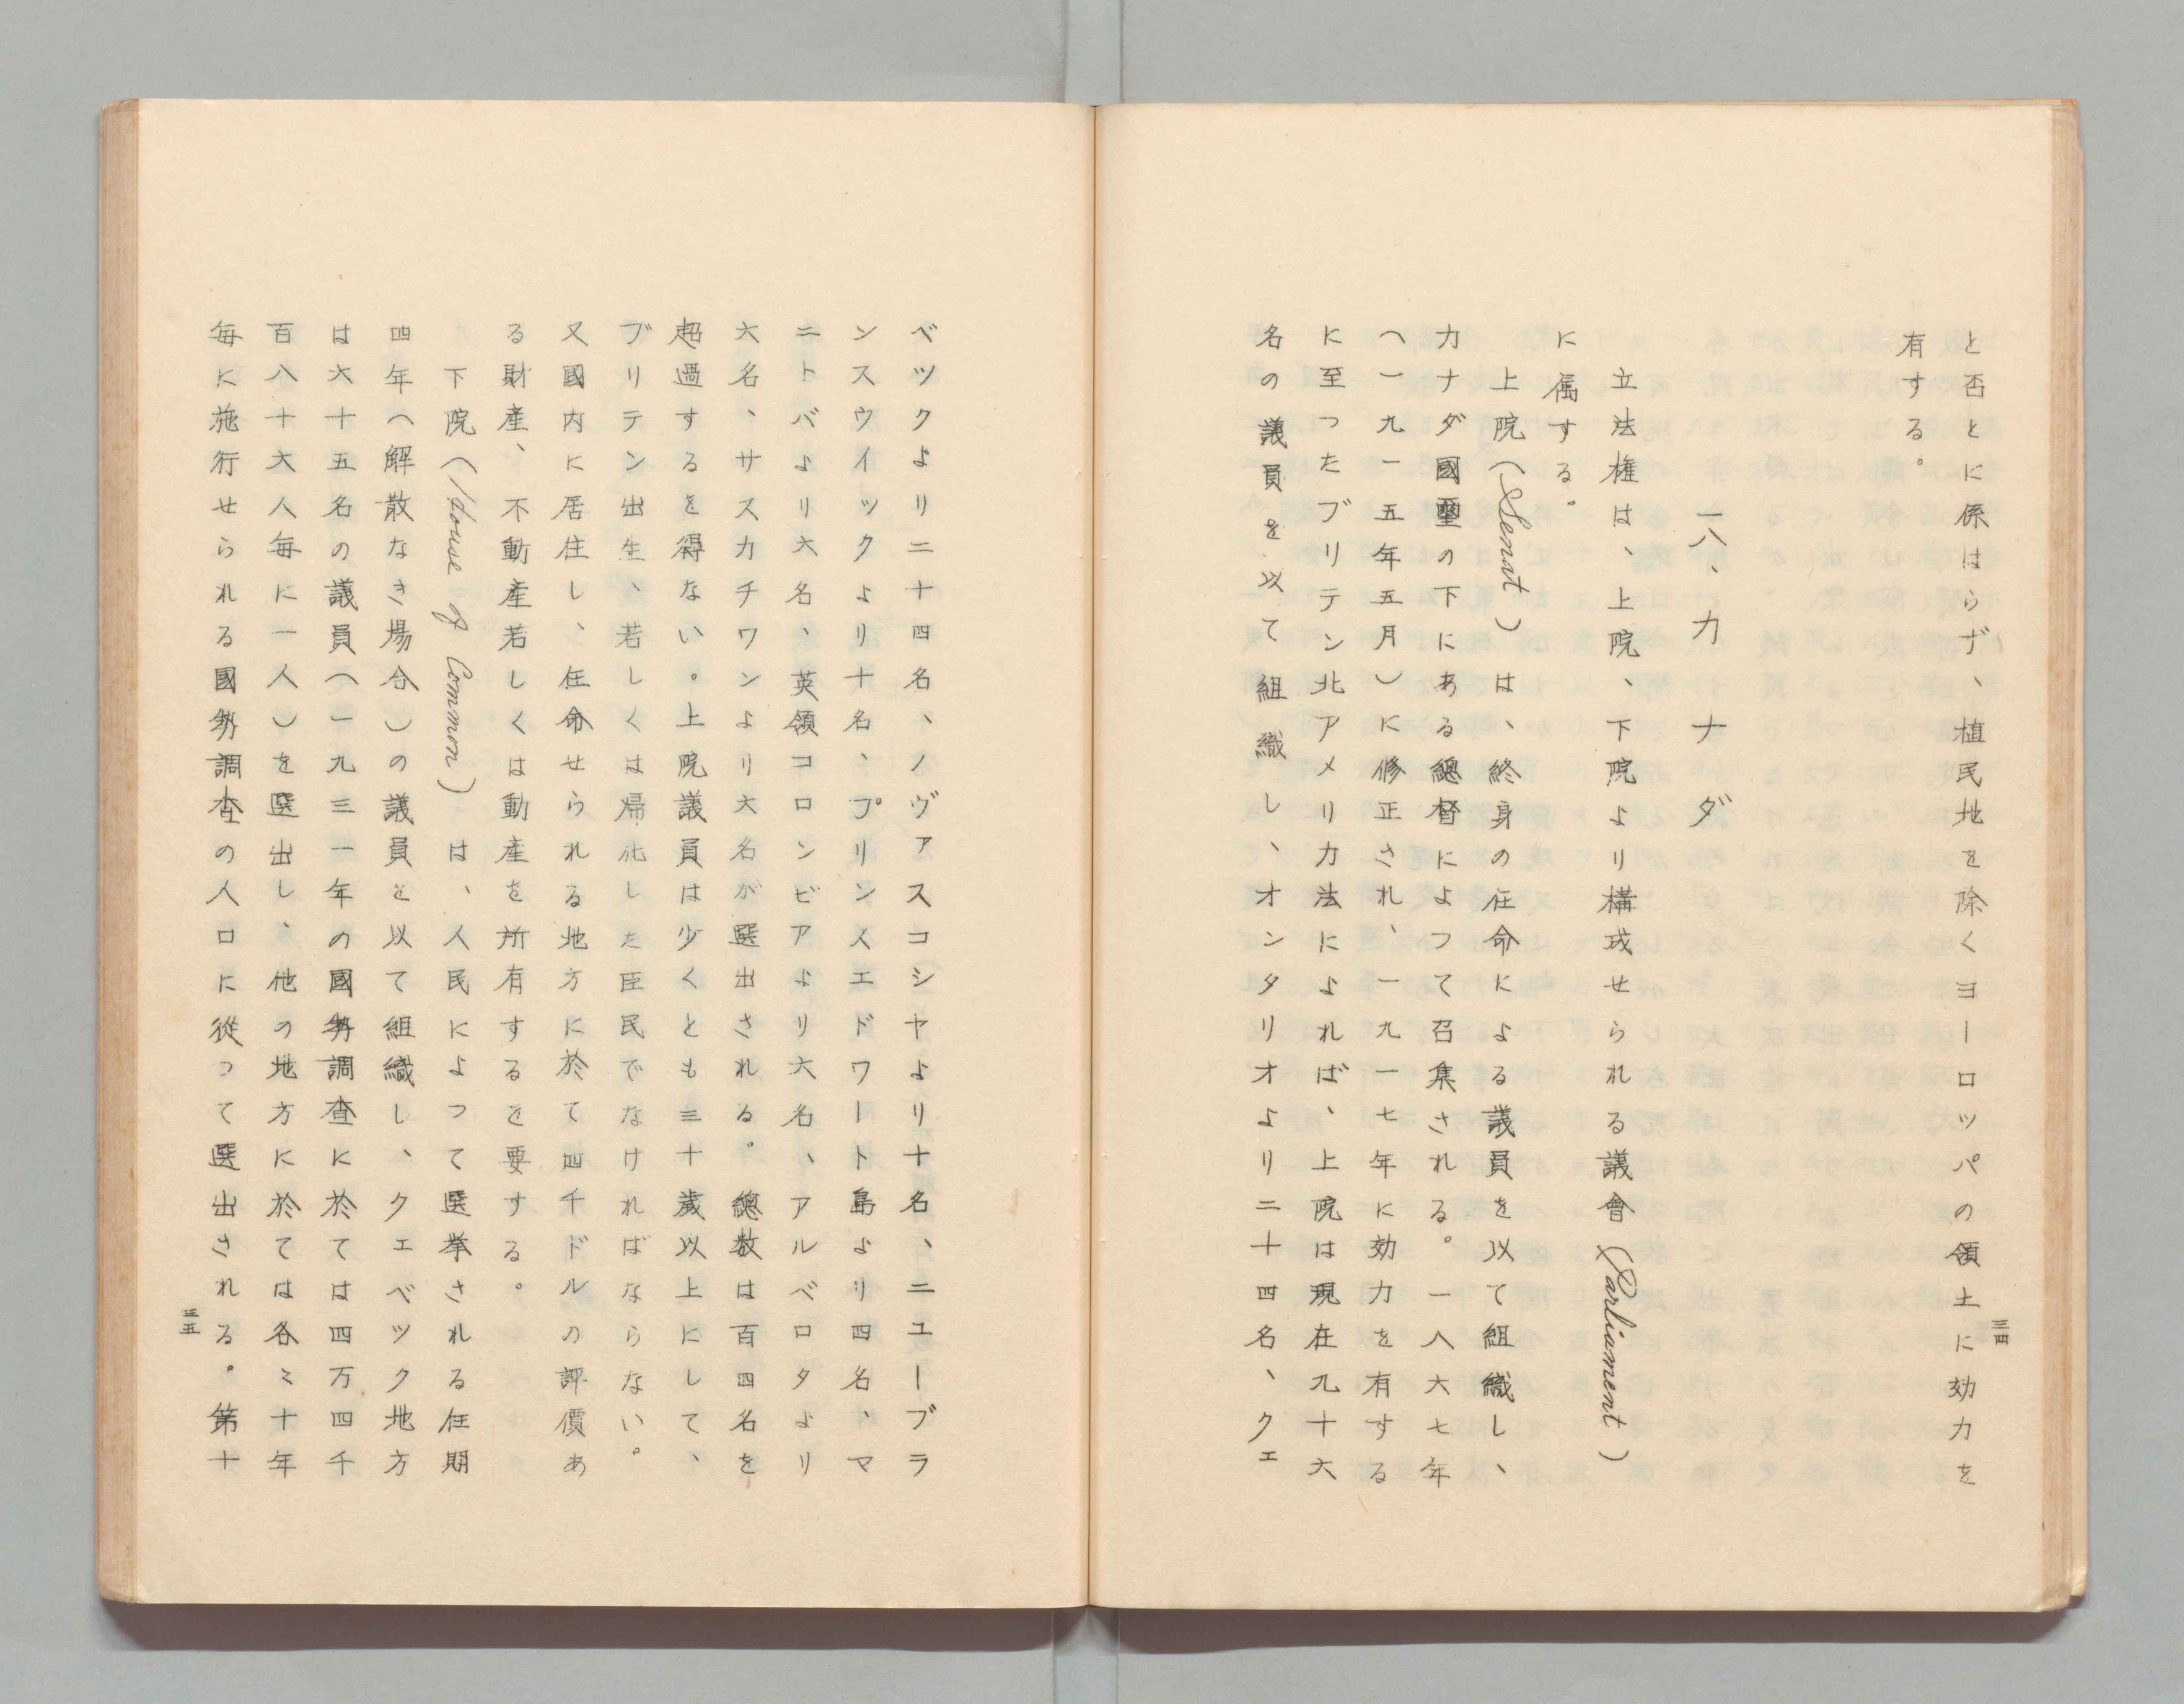 と否とに係はらず、植民地を除くヨーロッパの領土に効力を
有する。
一八、カナダ
立法権は、上院、下院より構成せられる議會(Parliament)
に属する。
上院(Senat)は、終身の任命による議員を以て組織し、
カナダ國璽の下にある總督によつて召集される。一八六七年
(一九一五年五月)に修正され、一九一七年に効力を有する
に至つたブリテン北アメリカ法によれば、上院は現在九十六
名の議員を以て組織し、オンタリオより二十四名、クェ
三四
ベツクより二十四名、ノヴァスコシヤより十名、ニユーブラ
ンスウイックより十名、プリンスエドワート島より四名、マ
ニトバより六名、英領コロンビアより六名、アルベロタより
六名、サスカチワンより六名が選出される。總数は百四名を
超過するを得ない。上院議員は少くとも三十歳以上にして、
ブリテン出生、若しくは帰化した臣民でなければならない。
又國内に居住し、任命せられる地方に於て四千ドルの評價あ
る財産、不動産若しくは動産を所有するを要する。
下院(House of Common)は、人民によつて選挙される任期
四年(解散なき場合)の議員を以て組織し、クエベツク地方
は六十五名の議員(一九三一年の國勢調査に於ては四万四千
百八十六人毎に一人)を選出し、他の地方に於ては各〻十年
毎に施行せられる國勢調査の人口に従つて選出される。第十
三五